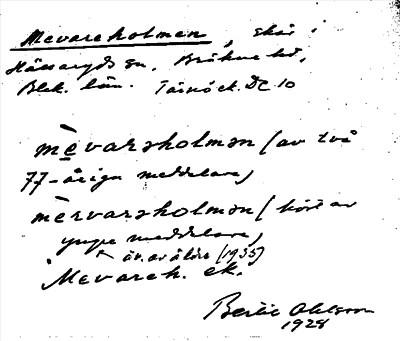 Mevareholmen, skär i
Hällaryds sn, Bräkne hd,
Blek. län. Tärnö ek. DC 10
mèvarsholmən (av två
77-åriga meddelare)
mèrvarsholmən (hört av
yngre meddelare)
äv. av äldre (1935)
Mevareh. ek.
Bertil Ohlsson
1928